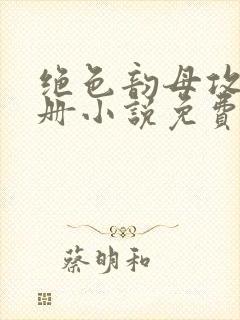 绝色韵母攻
册小说免费
蔡明和